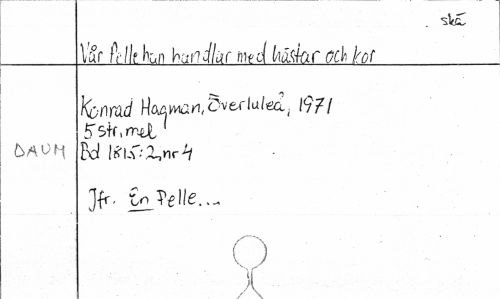 skä
Vår Pelle han handlar med hästar och kor
Konrad Hagman, Överluleå, 1971
5 str, mel
DAUM Bd 1815:2, nr 4
Jfr. En Pelle...